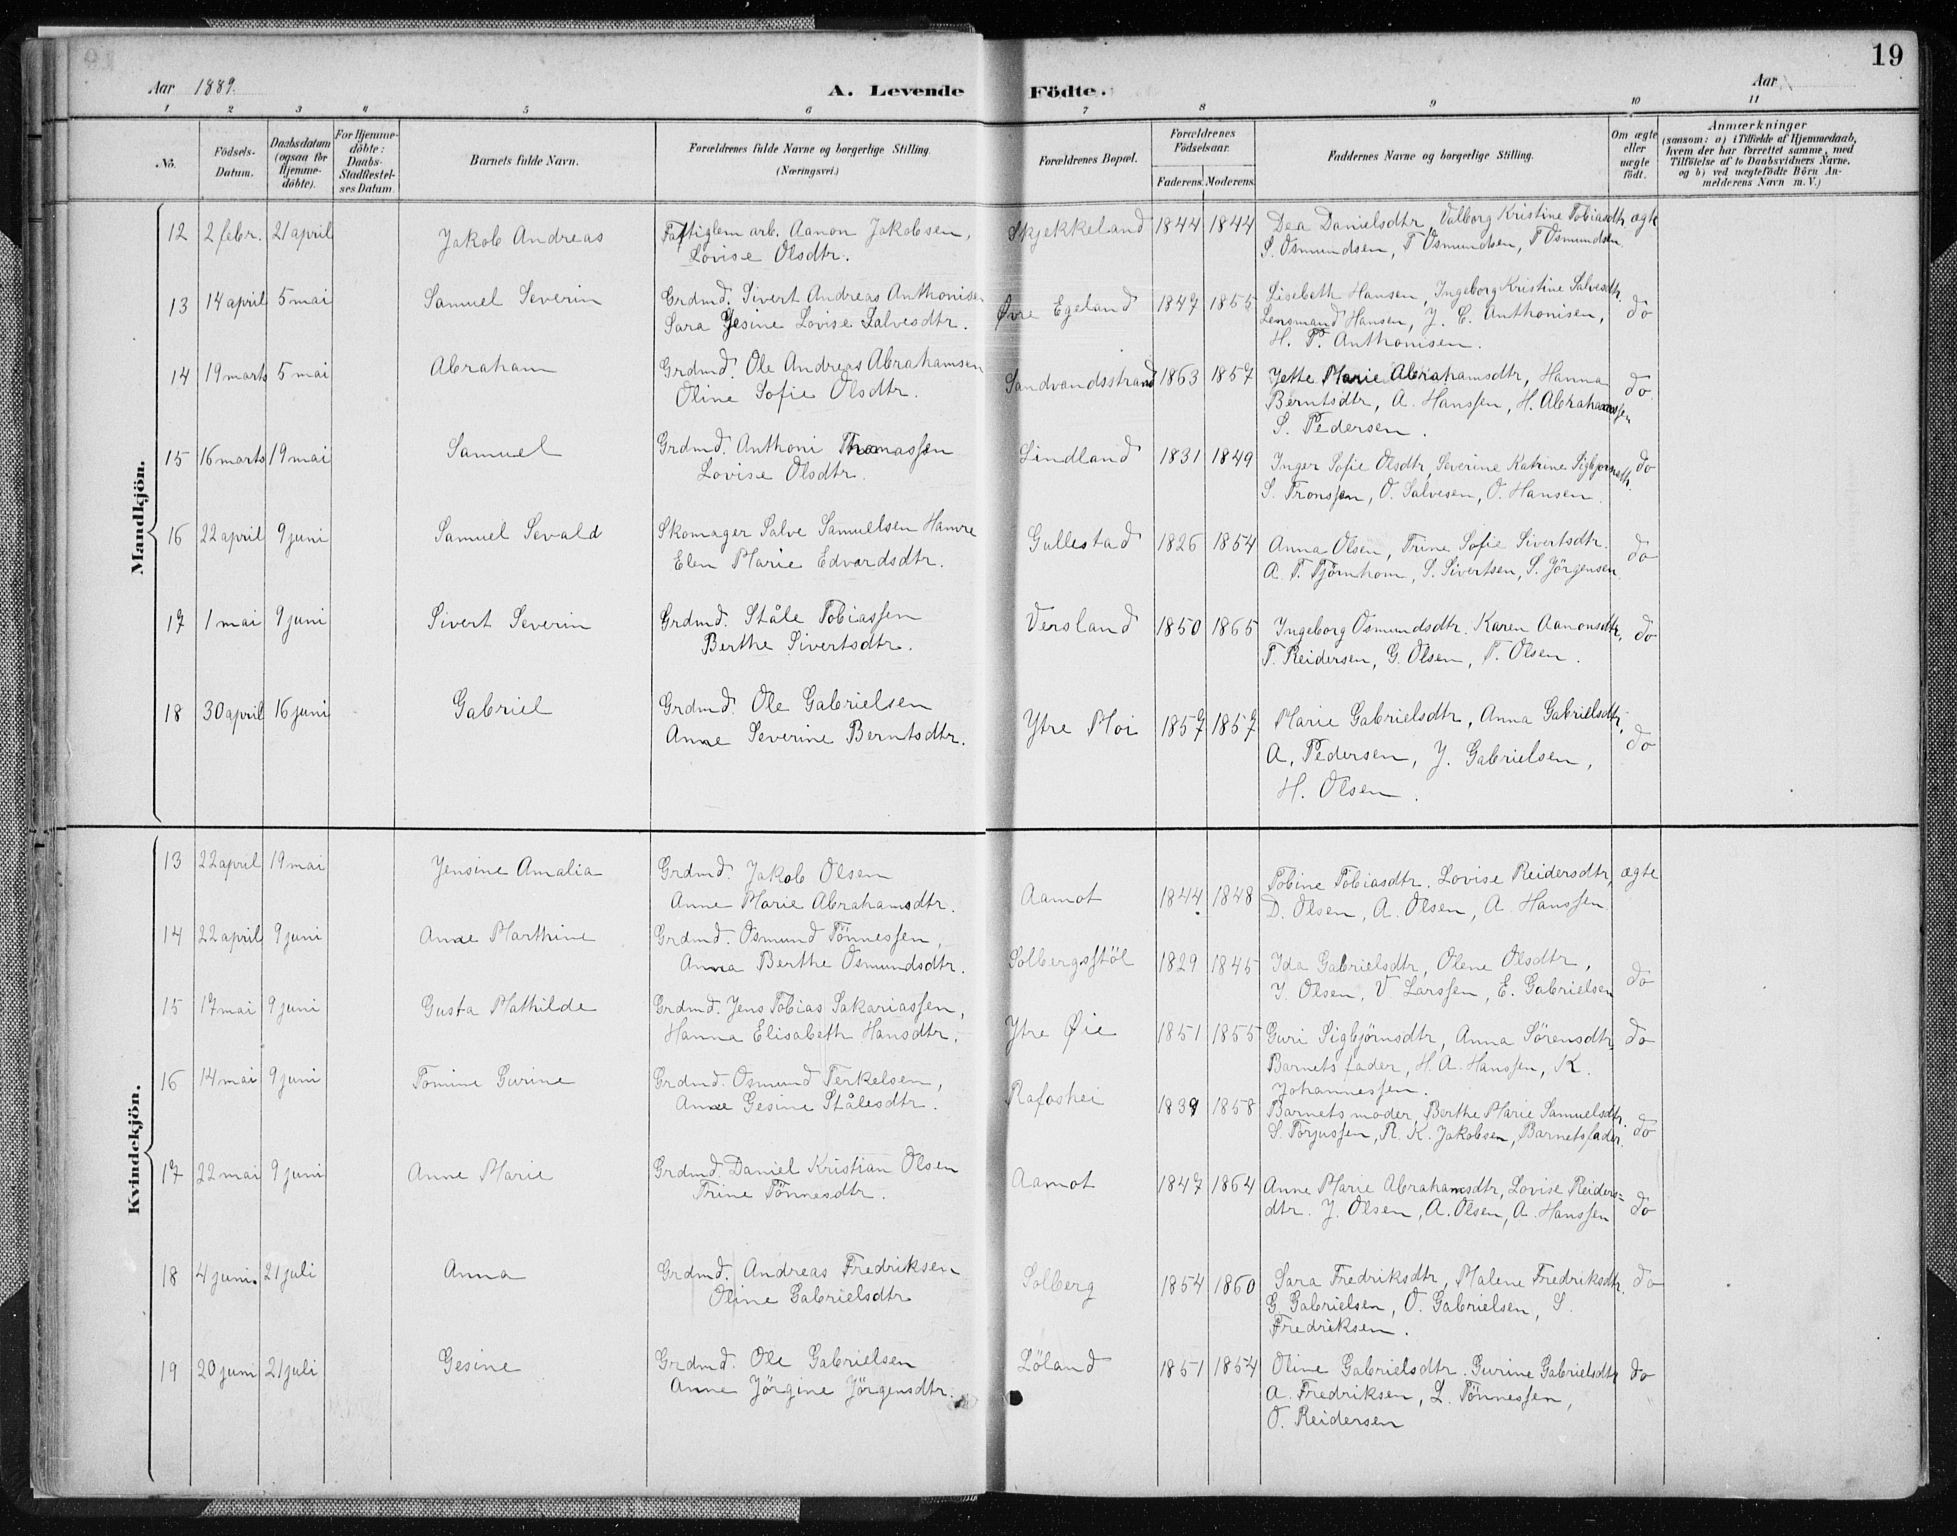 19
Aar 1889. A. Levende Födte. Aar
1 2 3 4 5 6 7 8 9 10 11
No. Födsels-Datum. Daabsdatum (ogsaa for Hjemmedöbte). For Hjemmedöbte: Daabs-Stadfæstelses Datum. Barnets fulde Navn. Forældrenes fulde Navne og borgerlige Stilling. (Næringsvei.) Forældrenes Bopæl. Forældrenes Födselsaar. Faderens. Moderens. Faddernes Navne og borgerlige Stilling. Om ægte eller uægte födt. Anmærkninger (saasom: a) i Tilfælde af Hjemmedaab, hvem der har forrettet samme, med Tilföielse af to Daabsvidners Navne, og b) ved uægtefödte Börn Anmelderens Navn m. V.)
Mandkjön.
12 2 febr. 21 april Jakob Andreas Fattiglem arb. Aanon Jakobsen, Skjekkeland 1844 1844 Dea Danielsdtr, Valborg Kristine Tobiasdtr ægte
Lovise Olsdtr. S. Osmundsen, T Osmundsen, T Osmundsen
13 14 april 5 mai Samuel Severin Grdmd. Sivert Andreas Anthonisen Øvre Egeland 1847 1855 Lisebeth Hansen, Ingeborg Kristine Salvesdtr. do
Sara Gesine Lovise Salvesdtr. Lensmand Hansen, J. E. Anthonisen,
H. P. Anthonisen.
14 19 marts 5 mai Abraham Grdmd. Ole Andreas Abrahamsen Sandvandsstrand 1863 1857 Jette Marie Abrahamsdtr, Hanna do
Oline Sofie Olsdtr. Berntsdtr, A. Hanssen, H. Abrahamssen
S. Pedersen.
15 16 marts 19 mai Samuel Grdmd. Anthoni Thomassen Lindland 1831 1849 Inger Sofie Olsdtr, Severine Katrine Sigbjørnsdtr. do
Lovise Olsdtr. S. Tronssen, O. Salvesen, O. Hansen.
16 22 april 9 juni Samuel Sevald Skomager Salve Samuelsen Hamre Gullestad 1826 1854 Anna Olsen, Trine Sofie Sivertsdtr. do
Elen Marie Edvardsdtr. A. T. Tjörnhom, S. Sivertsen, S. Jörgensen
17 1 mai 9 juni Sivert Severin Grdmd. Ståle Tobiassen Versland 1850 1865 Ingeborg Osmundsdtr. Karen Aanonsdtr, do
Berthe Sivertsdtr. T. Reidersen, G. Olsen, T. Olsen.
18 30 april 16 juni Gabriel Grdmd. Ole Gabrielsen Ytre Moi 1857 1857 Marie Gabrielsdtr, Anna Gabrielsdtr, do
Anne Severine Berntsdtr. A. Pedersen, J. Gabrielsen,
H. Olsen.
Kvindekjön.
13 22 april 19 mai Jensine Amalia Grdmd. Jakob Olsen Aamot 1844 1848 Tobine Tobiasdtr. Lovise Reidersdtr, ægte
Anne Marie Abrahamsdtr. D. Olsen, A. Olsen, A. Hanssen
14 22 april 9 juni Anne Marthine Grdmd. Osmund Tönnessen, Solbergsstöl 1829 1845 Ida Gabrielsdtr, Olene Olsdtr, do
Anna Berthe Osmundsdtr. J. Olsen, V. Larssen, E. Gabrielsen
15 17 mai 9 juni Gusta Mathilde Grdmd. Jens Tobias Sakariassen, Ytre Øie 1851 1855 Guri Sigbjørnsdtr, Anna Sörensdtr do
Hanna Elisabeth Hansdtr. Barnets fader, H. A. Hanssen, K.
Johannessen.
16 14 mai 9 juni Tomine Gurine Grdmd. Osmund Terkelsen, Rafoshei 1839 1858 Barnets moder, Berthe Marie Samuelsdtr. do
Anne Gesine Stålesdtr. S. Torjussen, R. K. Jakobsen, Barnets fader.
17 22 mai 9 juni Anne Marie Grdmd. Daniel Kristian Olsen Aamot 1847 1864 Anne Marie Abrahamsdtr, Lovise Reiders- do
Trine Tönnesdtr. dtr. J. Olsen, A. Olsen, A. Hanssen
18 4 juni 21 juli Anna Grdmd. Andreas Fredriksen Solberg 1854 1860 Sara Fredriksdtr, Malene Fredriksdtr. do
Oline Gabrielsdtr G Gabrielsen, O. Gabrielsen, S.
Fredriksen.
19 20 juni 21 juli Gesine Grdmd. Ole Gabrielsen Löland 1851 1854 Oline Gabrielsdtr. Gurine Gabrielsdtr do
Anne Jörgine Jörgensdtr. A. Fredriksen, L. Tönnessen,
O. Reidersen